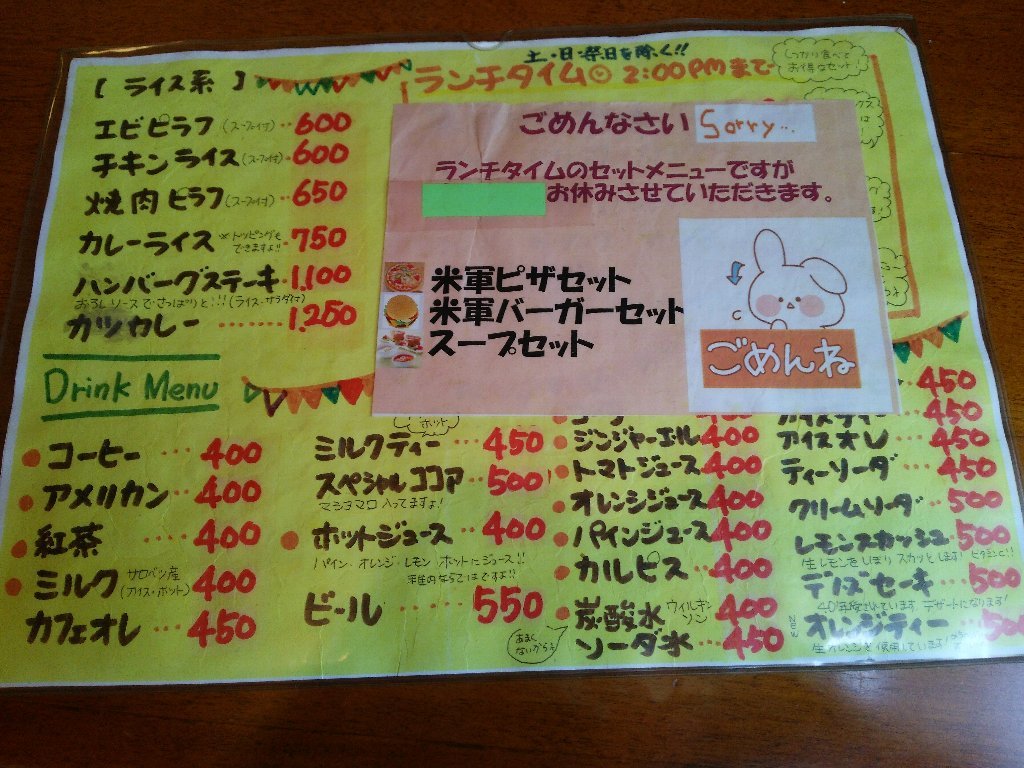 土・日・祭日を除く!!
ランチタイム 2:00PMまで
しっかり食べて
お得なセット!
【ライス系】
エビピラフ(スープ付)‥600
チキンライス(スープ付)‥600
焼肉ピラフ(スープ付)‥650
カレーライス ※トッピングも
できますよ!!‥750
ハンバーグステーキ‥1,100
おろしソースでさっぱりと!!!(ライス・サラダ付)
カツカレー ‥‥‥1,250
ごめんなさい Sorry...
ランチタイムのセットメニューですが
お休みさせていただきます。
米軍ピザセット
米軍バーガーセット
スープセット
ごめんね
Drink Menu
コーヒー‥400
アメリカン‥400
紅茶‥‥400
ミルク サロベツ産
(アイス・ホット)400
カフェオレ‥450
ホット
ミルクティー‥450
スペシャルココア‥500
マシュマロ入ってますよ!
ホットジュース‥400
パイン・オレンジ・レモン・ホットにジュース!!
稚内ならではですよ!!
ビール‥‥550
あまく
ないからネ
400
ジンジャーエル400
トマトジュース400
オレンジジュース400
パインジュース400
カルピス‥400
炭酸水 ウィルキン
ソン 400
ソーダ水‥450
450
アイスティー‥450
アイスオレ‥450
ティーソーダ‥450
クリームソーダ‥500
レモンスカッシュ500
生レモンをしぼりスカッとします!ビタミンC!!
デリズセーキ‥500
40年愛されています デザートになります!
NEW オレンジティー‥500
生オレンジを使用しています!